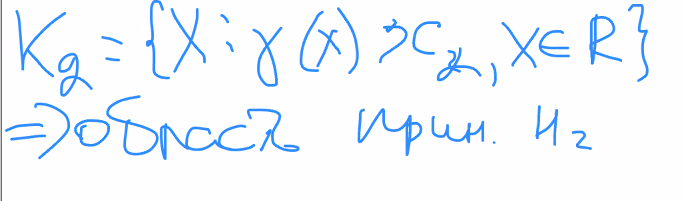 K₂ = {X : γ(x) > C₂, X ∈ R}
=> область прин. H₂